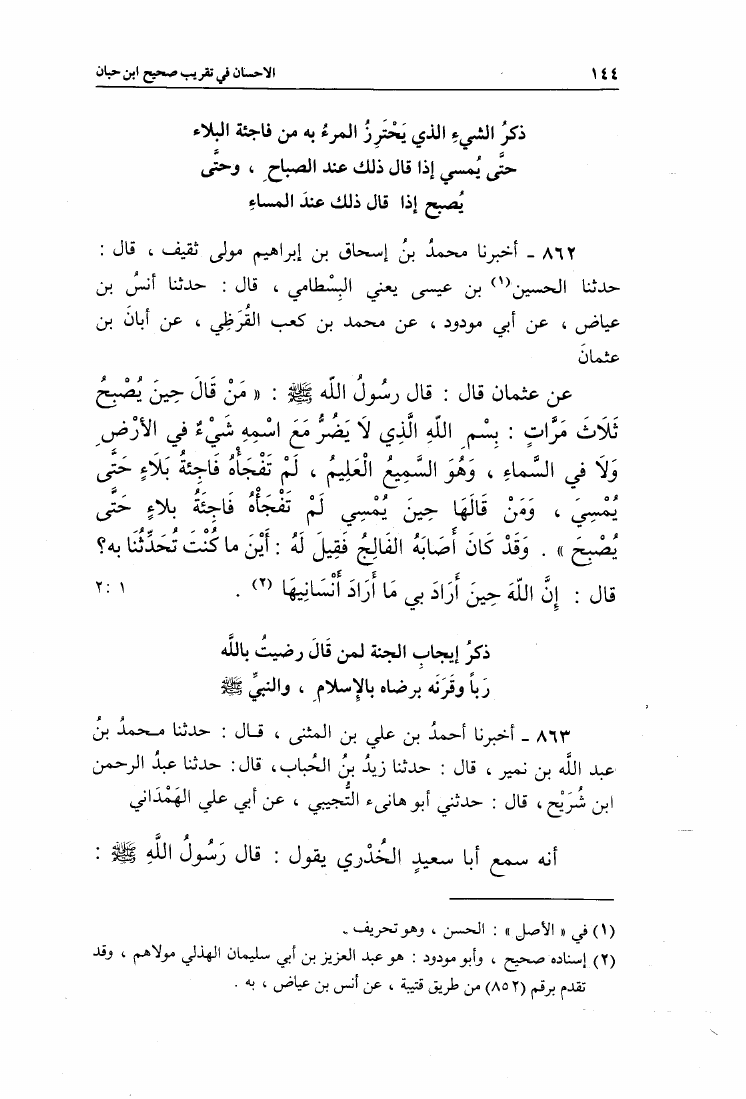 ١٤٤ الاحسان في تقريب صحيح ابن حبان
ذكرُ الشيءِ الذي يَحْتَرِزُ المرءُ به من فاجئة البلاء
حتَّى يُمسي إذا قال ذلك عند الصباحِ ، وحتَّى
يُصبح إذا قال ذلك عندَ المساءِ
٨٦٢ - أخبرنا محمدُ بنُ إسحاق بن إبراهيم مولى ثقيف ، قال :
حدثنا الحسين(١) بن عيسى يعني البِسْطامي ، قال : حدثنا أنسُ بن
عياض ، عن أبي مودود ، عن محمد بن كعب القُرَظِي ، عن أبانَ بن
عثمانَ
عن عثمان قال : قال رسُولُ الله ﷺ : « مَنْ قَالَ حِينَ يُصْبِحُ
ثَلَاثَ مَرَّاتٍ : بِسْمِ اللهِ الَّذِي لَا يَضُرُّ مَعَ اسْمِهِ شَيْءٌ في الأرْضِ
وَلَا في السَّماءِ ، وَهُوَ السَّمِيعُ الْعَلِيمُ ، لَمْ تَفْجَأْهُ فَاجِئَةُ بَلَاءٍ حَتَّى
يُمْسِيَ ، وَمَنْ قَالَهَا حِينَ يُمْسِي لَمْ تَفْجَأْهُ فَاجِئَةُ بلاءٍ حَتَّى
يُصْبِحَ » . وَقَدْ كَانَ أَصَابَهُ الفَالِجُ فَقِيلَ لَهُ : أَيْنَ ما كُنْتَ تُحَدِّثُنَا به؟
قال : إِنَّ اللهَ حِينَ أَرَادَ بي مَا أَرَادَ أَنْسَانِيهَا (٢) . ١ :٢
ذكرُ إيجابِ الجنة لمن قَالَ رضيتُ باللَّه
رَباً وقَرَنَه برضاه بالإِسلامِ ، والنبيِّ ﷺ
٨٦٣ - أخبرنا أحمدُ بن علي بن المثنى ، قال : حدثنا محمدُ بنُ
عبد الله بن نمير ، قال : حدثنا زيدُ بنُ الحُباب، قال: حدثنا عبدُ الرحمن
ابن شُرَيْح، قال : حدثني أبو هانىء التُّجيبي ، عن أبي علي الهَمْدَاني
أنه سمع أبا سعيدٍ الخُدْري يقول : قال رَسُولُ اللَّهِ ﷺ :
(١) في « الأصل » : الحسن ، وهو تحريف .
(٢) إسناده صحيح ، وأبو مودود : هو عبد العزيز بن أبي سليمان الهذلي مولاهم ، وقد
تقدم برقم (٨٥٢) من طريق قتيبة ، عن أنس بن عياض ، به .